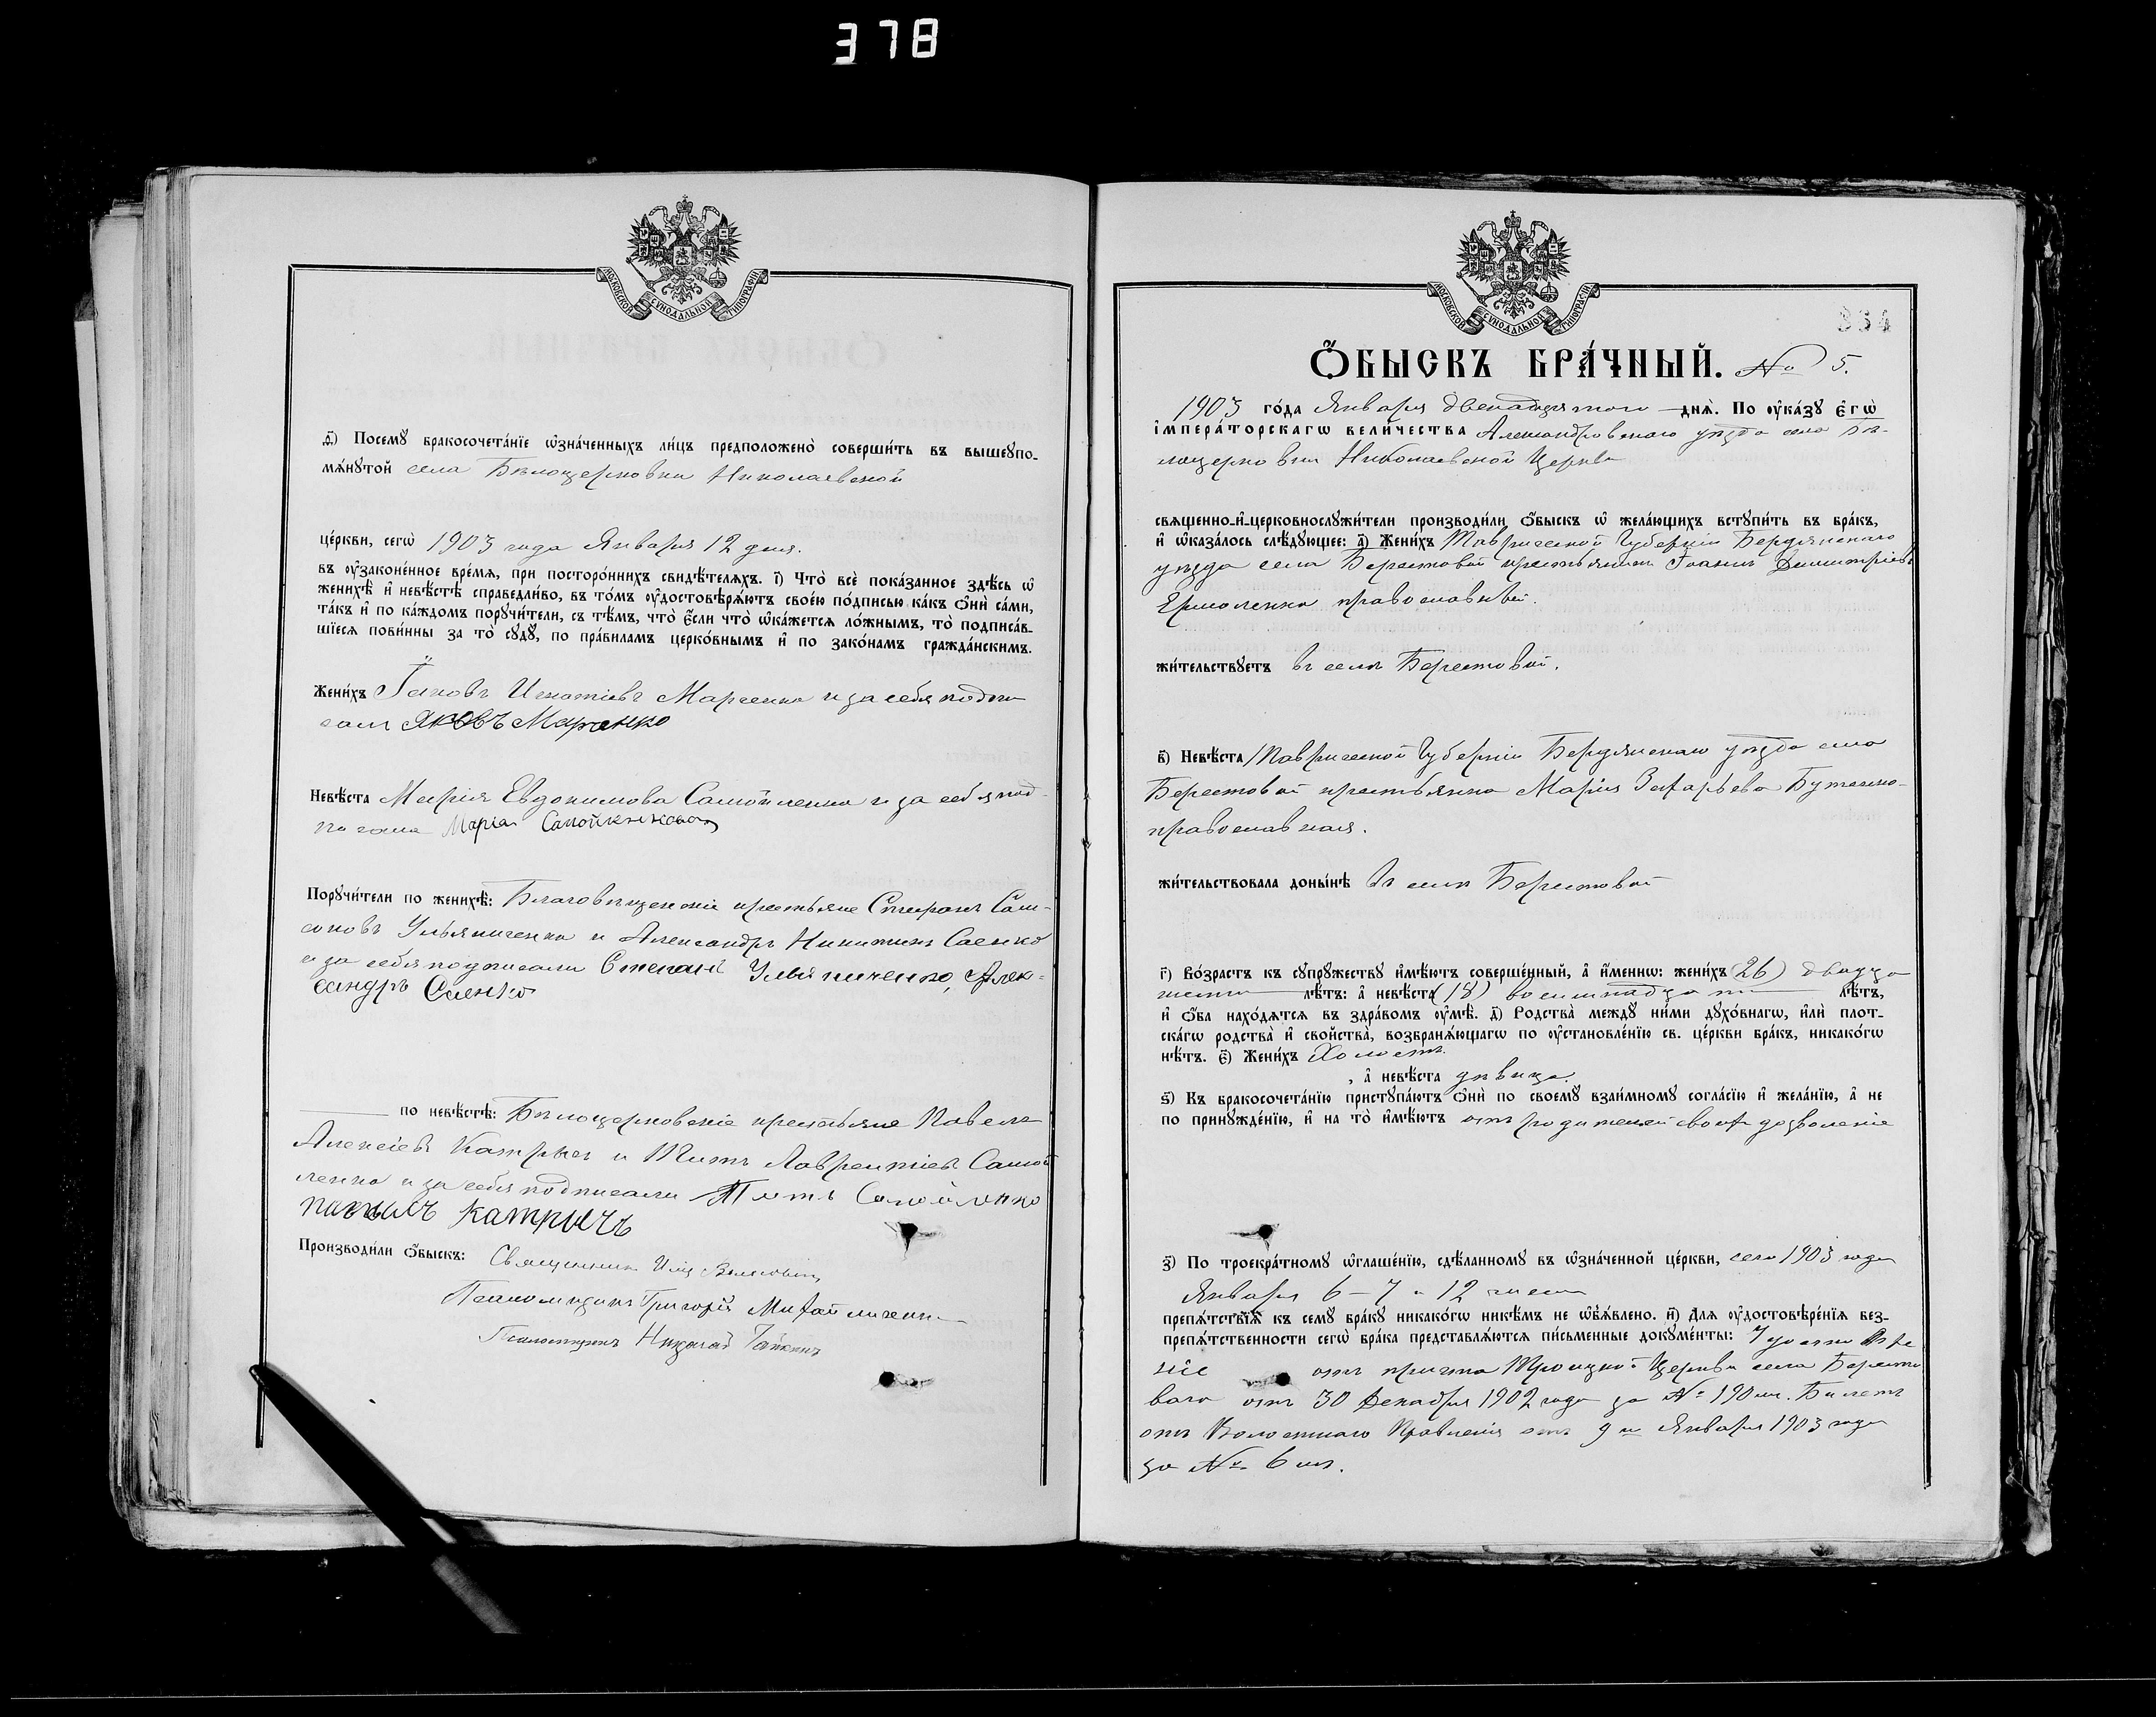 378
МОСКОВСКОЙ СѴНОДАЛЬНОЙ ТИПОГРАФІИ
д҃і) Посемꙋ бракосочета́нїе ѡ҆зна́ченныхъ ли́цъ предположено̀ соверши́ть въ вышеꙋпо-
мѧ́нꙋтой села Бѣлоцерковки Николаевской
це́ркви, сегѡ̀ 1903 года Января 12 дня.
въ ᲂу҆зако́ненное вре́мѧ, при посторо́ннихъ свидѣ́телѧхъ. і҃) Что̀ всѐ пока́занное здѣ́сь ѡ҆
женихѣ̀ и҆ невѣ́стѣ справедли́во, въ то́мъ ᲂу҆достовѣрѧ́ютъ свое́ю по́дписью ка́къ ѻ҆нѝ са́ми,
та́къ и҆ по ка́ждомъ порꙋчи́тели, съ тѣ́мъ, что̀ є҆́сли что̀ ѡ҆ка́жетсѧ ло́жнымъ, то̀ подписа́в-
шїесѧ пови́нны за то̀ сꙋдꙋ̀, по пра́виламъ церко́внымъ и҆ по зако́намъ гражда́нскимъ.
Жени́хъ Іаковъ Игнатіевъ Марченко и за себя подпи
салъ Яковъ Марченко
Невѣ́ста Марія Евдокимова Самойленко и за себя под-
писала Марiа Самойленкова
Порꙋчи́тели по женихѣ̀: Благовѣщенскіе крестьяне Стефанъ Сам-
соновъ Ульяниченко и Александръ Никитинъ Саенко
и за себя подписали Степанъ Ульяниченко, Алек-
сандръ Саенко
по невѣ́стѣ: Бѣлоцерковскіе крестьяне Павелъ
Алексіевъ Катрычъ и Титъ Лаврентіевъ Самой
ленко и за себя подписали Титъ Самойленко
Павилъ Катрычъ
Производи́ли ѻ҆́быскъ: Священникъ Илія
Псаломщикъ Григорій Михайличенко
Псаломщикъ Николай
МОСКОВСКОЙ СѴНОДАЛЬНОЙ ТИПОГРАФІИ
334
Ѻ҆́БЫСКЪ БРА́ЧНЫЙ. № 5.
1903 го́да Января двенадцятого днѧ̀. По ᲂу҆ка́зꙋ є҆гѡ̀
і҆мпера́торскагѡ вели́чества Александровскаго уѣзда села Бѣ-
лоцерковки Николаевской Церкви
свѧщенно-и҆-церковнослꙋжи́тели производи́ли ѻ҆́быскъ ѡ҆ жела́ющихъ встꙋпи́ть въ бра́къ,
и҆ ѡ҆каза́лось слѣ́дꙋющее: а҃) Жени́хъ Таврической Губерніи Бердянскаго
уѣзда села Берестовой крестьянинъ Іоаннъ Димитріевъ
Ермоленко православный.
жи́тельствꙋетъ въ селѣ Берестовой.
в҃) Невѣ́ста Таврической Губерніи Бердянскаго уѣзда села
Берестовой крестьянка Марія Захарьева Бутенко-
православная.
жи́тельствовала доны́нѣ въ селѣ Берестовой
г҃) Во́зрастъ къ сꙋпрꙋ́жествꙋ и҆мѣ́ютъ соверше́нный, а҆ и҆́менно: жени́хъ (26) двадца
шести лѣ́тъ: а҆ невѣ́ста (18) восемнадцати лѣ́тъ,
и҆ ѻ҆́ба нахо́дѧтсѧ въ здра́вомъ ᲂу҆мѣ̀. д҃) Родства̀ междꙋ ни́ми дꙋхо́внагѡ, и҆лѝ плот-
ска́гѡ родства̀ и҆ сво́йства, возбранѧ́ющагѡ по ᲂу҆становле́нїю св. це́ркви бра́къ, никако́гѡ
нѣ́тъ. є҃) Жени́хъ Холостъ.
, а҆ невѣ́ста дѣвица.
ѕ҃) Къ бракосочета́нїю пристꙋпа́ютъ ѻ҆нѝ по своемꙋ̀ взаи́мномꙋ согла́сїю и҆ жела́нїю, а҆ не
по принꙋжде́нїю, и҆ на то̀ и҆мѣ́ютъ отъ родителей своихъ дозволеніе
з҃) По троекра́тномꙋ ѡ҆глаше́нїю, сдѣ́ланномꙋ въ ѡ҆зна́ченной це́ркви, сего 1903 года
Января 6 – 7 и 12 числа
препѧ́тствїѧ къ семꙋ̀ бра́кꙋ никако́гѡ никѣ́мъ не ѡ҆б̾ѧ́влено. и҃) Для ᲂу҆достовѣре́нїѧ без-
препѧ́тственности сегѡ̀ бра́ка представлѧ́ютсѧ пи́сьменные докꙋме́нты: Удостовѣре
ніе отъ причта Троицкой Церкви села Бересто
ваго отъ 30 Декабря 1902 года за № 190мъ. Билетъ
отъ Волостнаго Правленія отъ 9го Января 1903 года
за № 6мъ.